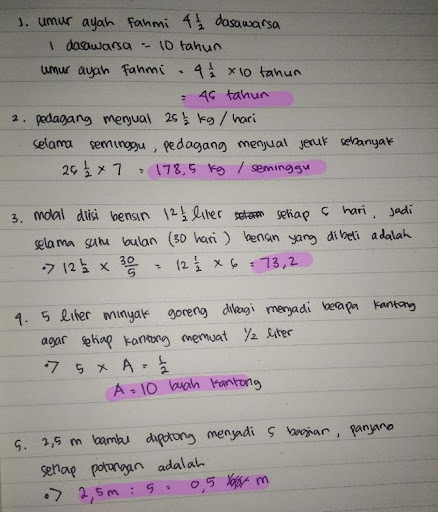 1. umur ayah Fahmi 4 1/2 dasawarsa
1 dasawarsa = 10 tahun
umur ayah Fahmi = 4 1/2 x 10 tahun
= 45 tahun
2. pedagang menjual 25 1/2 kg / hari
selama seminggu, pedagang menjual jeruk sebanyak
25 1/2 x 7 = 178,5 kg / seminggu
3. mobil diisi bensin 12 1/2 liter setiap 5 hari, jadi
selama satu bulan (30 hari) bensin yang dibeli adalah
-> 12 1/2 x 30/5 = 12 1/2 x 6 = 73,2
4. 5 liter minyak goreng dibagi menjadi berapa kantong
agar setiap kantong memuat 1/2 liter
-> 5 x A = 1/2
A = 10 buah kantong
5. 2,5 m bambu dipotong menjadi 5 bagian, panjang
setiap potongan adalah
-> 2,5m : 5 = 0,5 m